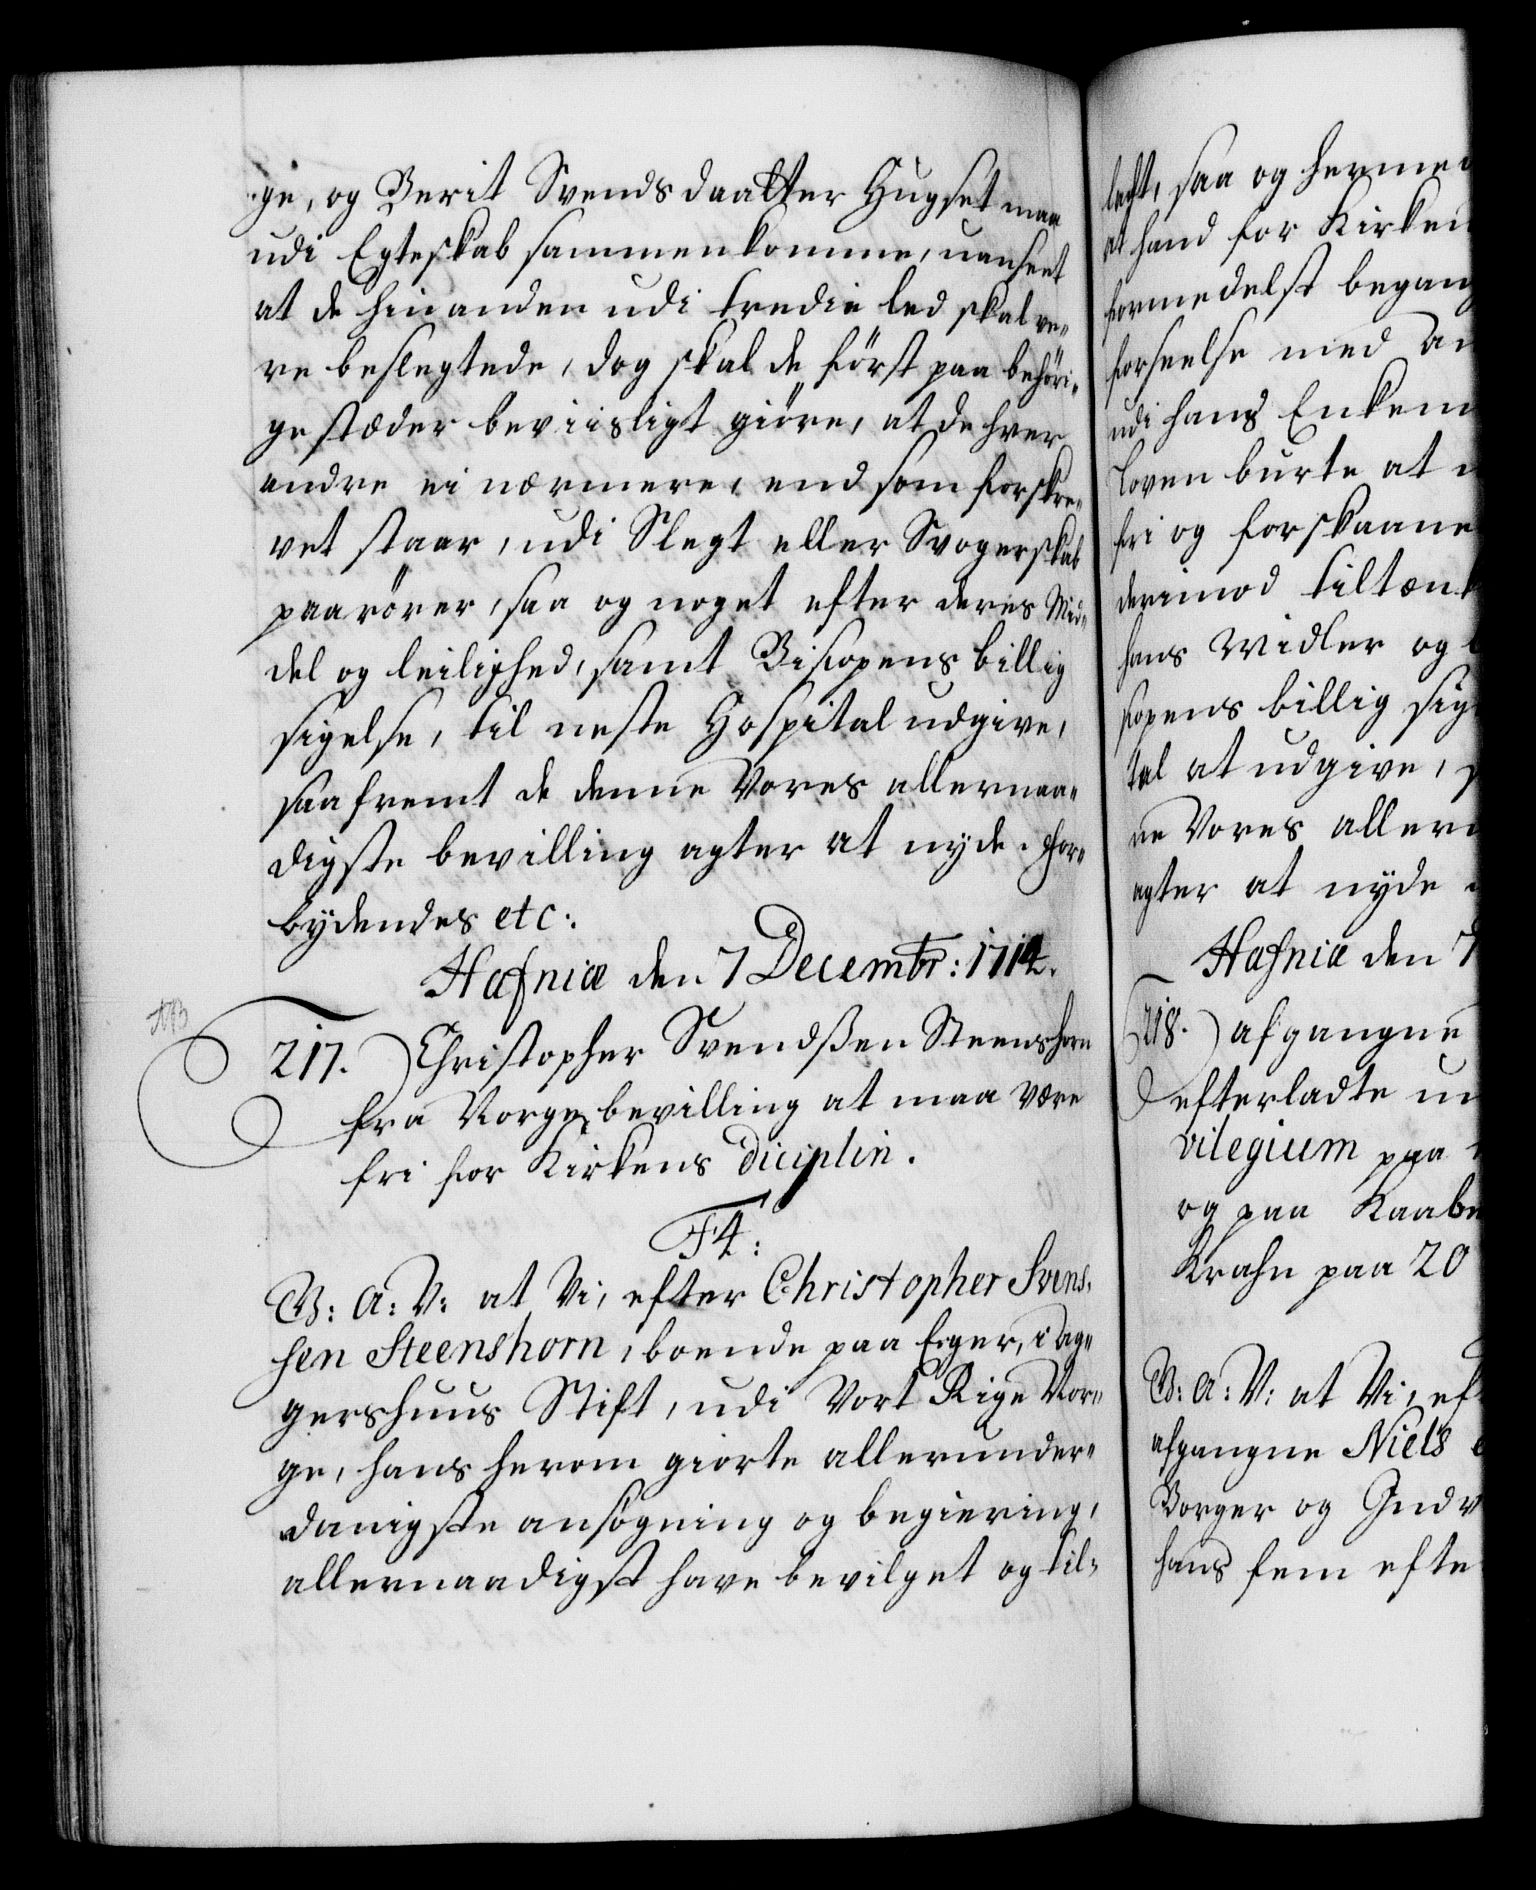 ge, og Berit Svends daatter Hugset maa
udi Egteskab sammenkomme, uanseet
at de hinanden udi tredie led skal ve-
re beslegtede, dog skal de först paa behöri-
ge stæder beviisligt giöre, at de hver
andre ei nærmere, end som forskre-
vet staar, udi Slegt eller Svogerskab
paarörer, saa og noget efter deres Mid-
del og leilighed, samt Biscopens billig
sigelse, til neste Hospital udgive,
saafremt de denne Vores allernaa-
digste bevilling agter at nyde. For-
bydendes etc:
Hafniæ den 7 Decembr: 1714.
NB
217. Christopher Svendßen Steenshorn
fra Norge, bevilling at maa være
fri for Kirkens diciplin.
F4:
V: A: V: at Vi, efter Christopher Svens-
sen Steenshorn, boende paa Eger, i Ag-
gershuus Stift, udi Vort Rige Nor-
ge, hans herom giorte allerunder-
danigste ansögning og begiering,
allernaadigst have bevilget og til-
ladt, saa og herme
at hand for Kirken
formedelst begang
forseelse med an
udi hans Enkem
Loven burte at
fri og forskaane
derimod tiltænk
hans Midler og
scopens billig sig
tal at udgive,
ne Vores allern
agter at nyde
Hafniæ den 7
218. afgangne
efterladte
vilegium paa
og paa Kaab
Krahn paa 20
V: A: V: at Vi, eft
afgangne Niels
Borger og Indv
hans fem efte